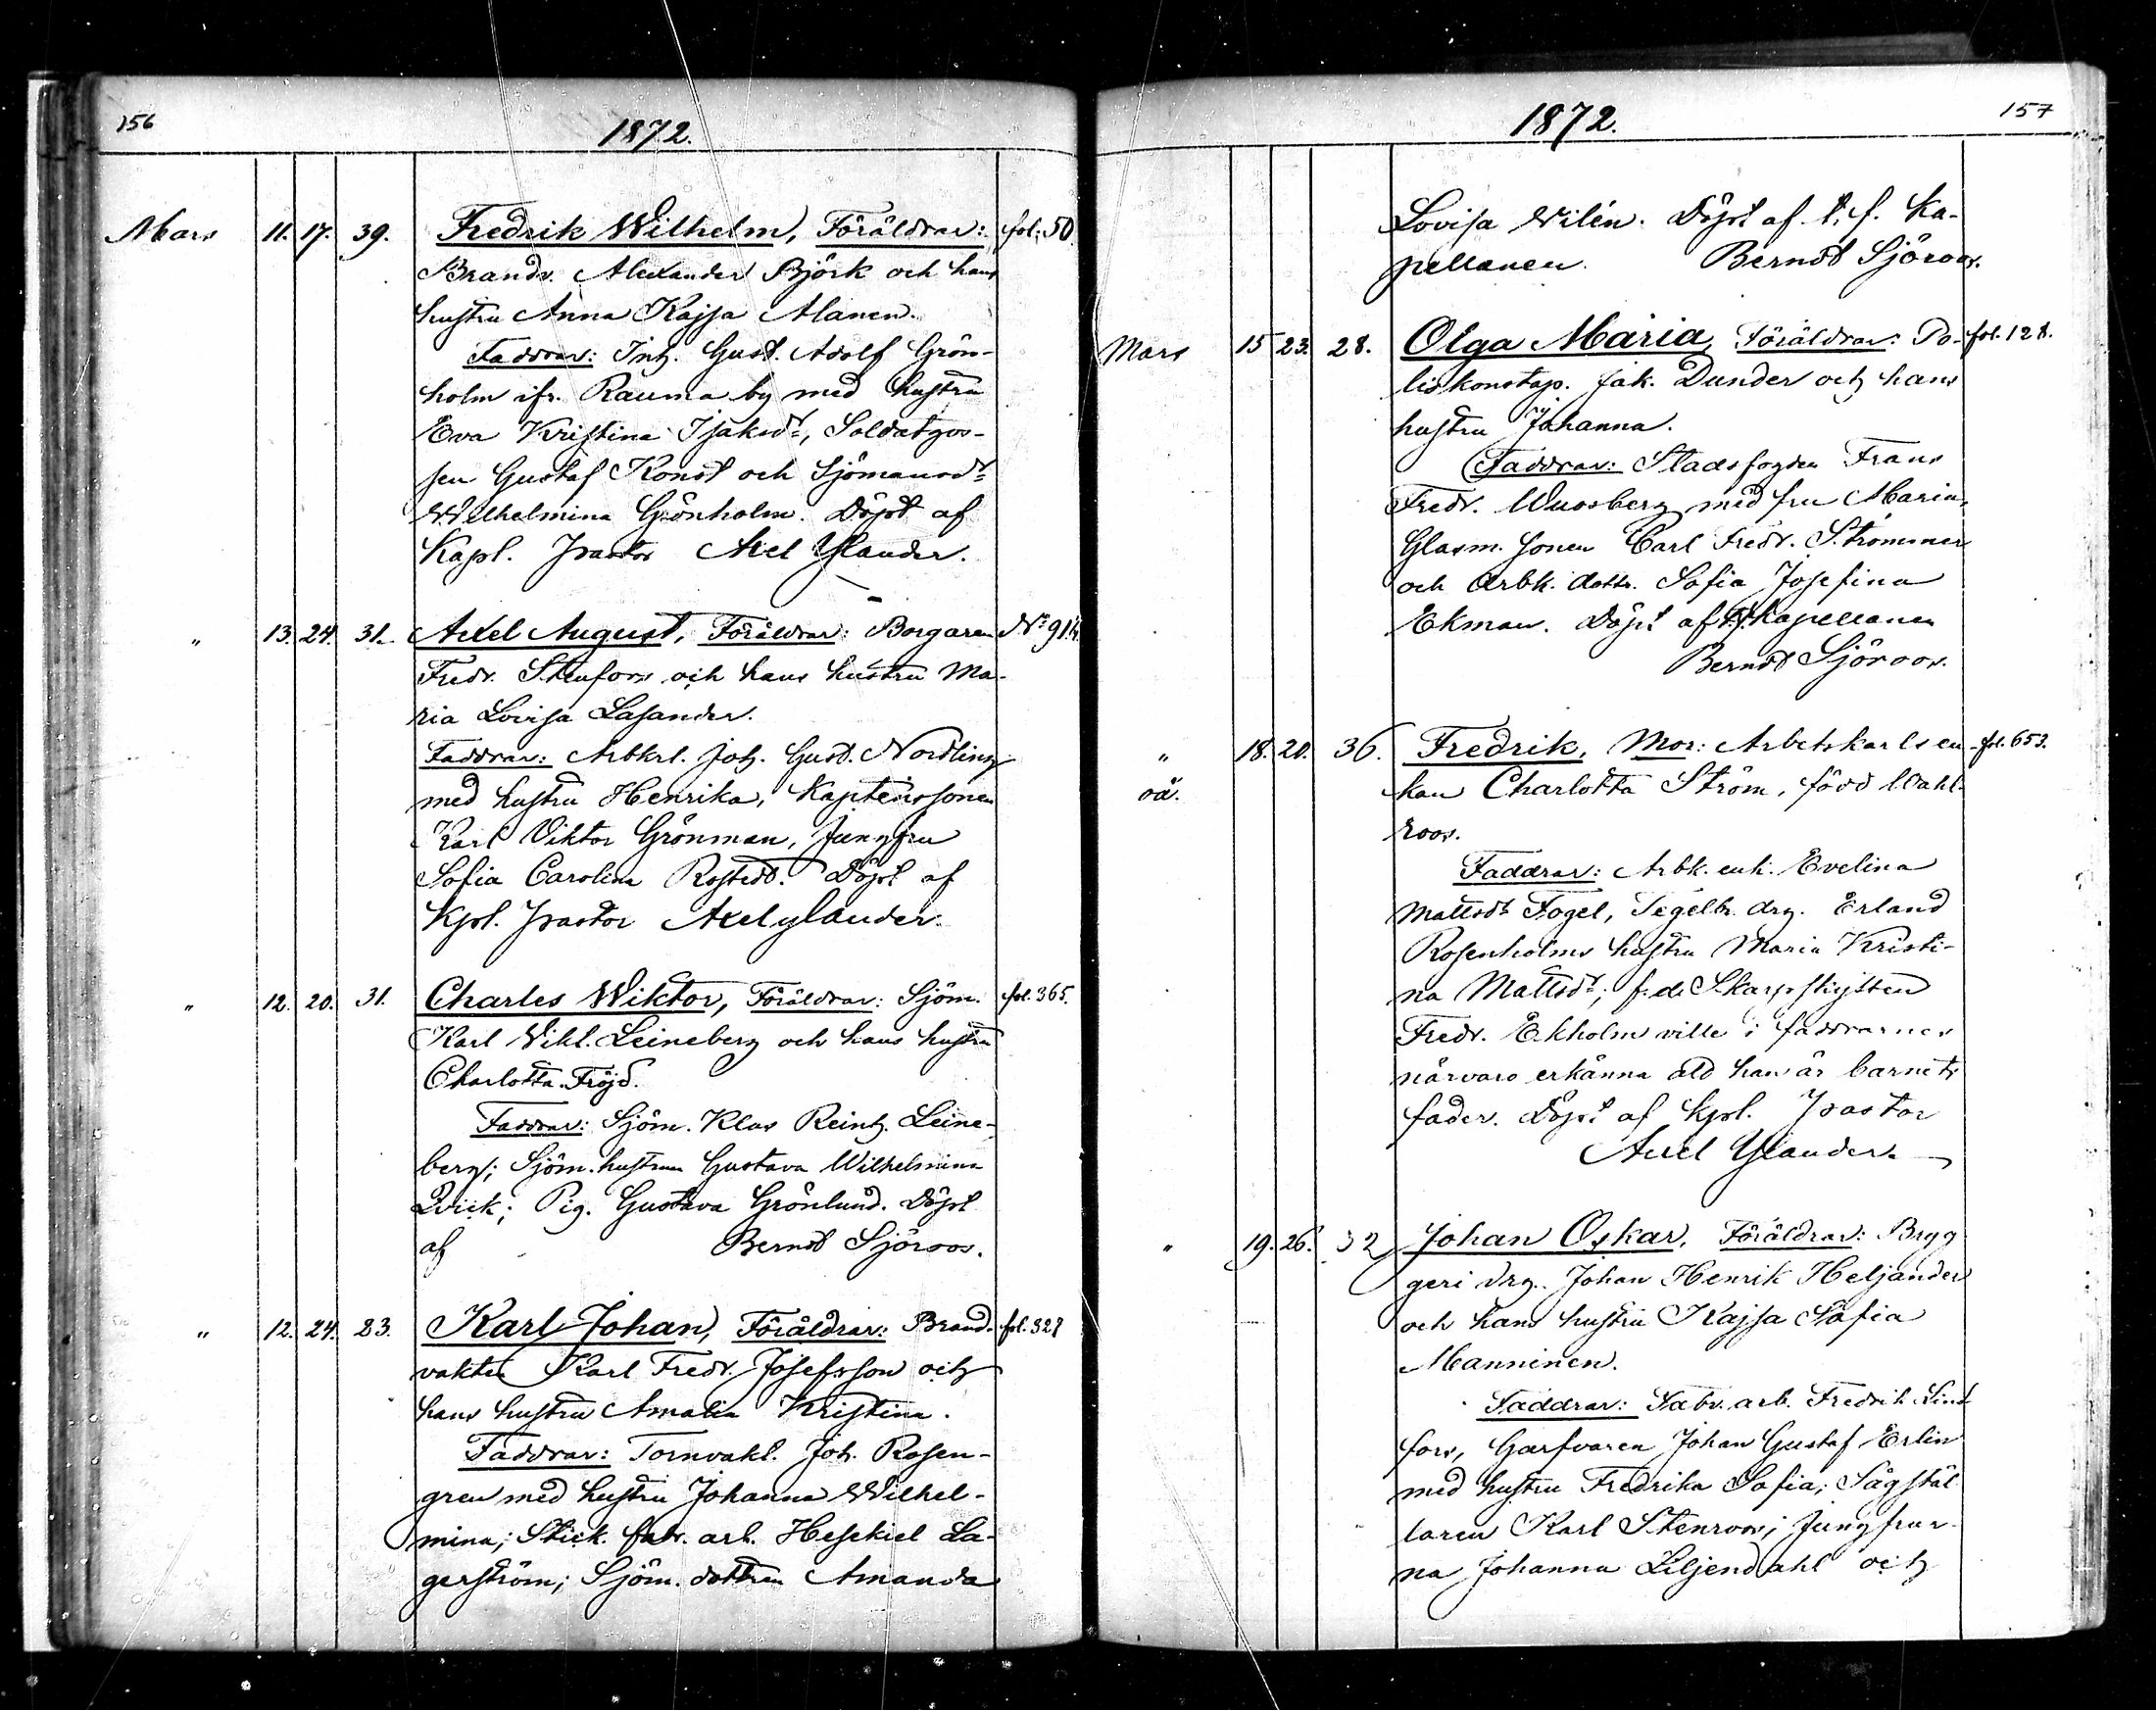 156
1872.
Mars 11. 17. 39. Fredrik Wilhelm, Föräldrar: fol. 50
Brandv. Alexander Björk och hans
hustru Anna Kajsa Alanen.
Faddrar: Inh. Gust. Adolf Grön-
holm ifr. Rauma by med hustru
Eva Kristina Isaksdr, Soldatgos-
sen Gustaf Konst och Sjömansdr
Wilhelmina Grönholm. Döpt af
Kapl. Pastor Axel Ylander.
" 13. 24. 31. Axel August, Föräldrar: Borgaren No 91.
Fredr. Stenfors och hans hustru Ma-
ria Lovisa Lasander.
Faddrar: Arbkrl. Joh. Gust. Nordling
med hustru Henrika, Kaptenssonen
Karl Viktor Grönman, Jungfru
Sofia Carolina Rostedt. Döpt af
Kpl. Pastor Axel Ylander.
" 12. 20. 31. Charles Wiktor, Föräldrar: Sjöm. fol. 365.
Karl Vikt. Leineberg och hans hustru
Charlotta Fröjd.
Faddrar: Sjöm. Klas Reinh. Leine-
berg; Sjöm. hustrun Gustava Wilhelmina
Qvick; Pig. Gustava Grönlund. Döpt
af Berndt Sjöroos.
" 12. 24. 23. Karl Johan, Föräldrar: Brand- fol. 328
vakten Karl Fredr. Josefsson och
hans hustru Amalia Kristina.
Faddrar: Tornvakt. Joh. Rosen-
gren med hustru Johanna Wilhel-
mina; Stick. fabr. arb. Hesekiel La-
gerström; Sjöm. dottren Amanda
157
1872.
Lovisa Wilén. Döpt af t. f. Ka-
pellanen. Berndt Sjöroos.
Mars 15 23. 28. Olga Maria, Föräldrar: Po- fol. 128.
liskonstap. Jak. Dunder och hans
hustru Johanna.
Faddrar: Stadsfogden Frans
Fredr. Wuosberg med fru Maria,
Glasm. sonen Carl Fredr. Strömmer
och Arbk. dottr. Sofia Josefina
Ekman. Döpt af t.f. Kapellanen
Berndt Sjöroos.
" 18. 20. 36. Fredrik, Mor: Arbetskarlsen- fol. 653.
oä. kan Charlotta Ström, född Wahl-
roos.
Faddrar: Arbk. enk. Evelina
Mattsdr Fogel, Tegelbr. drg. Erland
Rosenholms hustru Maria Kristi-
na Mattsdr; f.d. Skarpskytten
Fredr. Ekholm ville i faddrarnes
närvaro erkänna att han är barnets
fader. Döpt af Kpl. Pastor
Axel Ylander.
" 19. 26. 32 Johan Oskar, Föräldrar: Bryg
geri drg. Johan Henrik Heljander
och hans hustru Kajsa Sofia
Manninen.
Faddrar: Fabr. arb. Fredrik Lind
fors, Garfvaren Johan Gustaf Erlin
med hustru Fredrika Sofia; Sågstäl
laren Karl Stenroos; Jungfrur-
na Johanna Liljendahl och